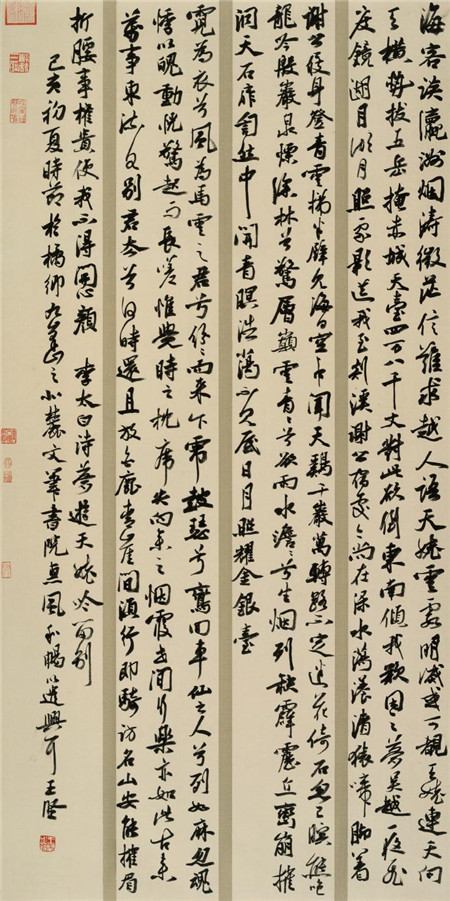 海客談瀛洲烟濤微茫信難求越人語天姥雲霓明滅或可覩天姥連天向
天橫勢拔五岳掩赤城天臺四萬八千丈對此欲倒東南傾我欲因之夢吳越一夜飛
度鏡湖月湖月照我影送我至剡溪謝公宿處今尚在淥水蕩漾清猿啼腳著
謝公屐身登青雲梯半壁見海日空中聞天鷄千巖萬轉路不定迷花倚石忽已暝熊咆
龍吟殷巖泉慄深林兮驚層巔雲青青兮欲雨水澹澹兮生烟列缺霹靂丘巒崩摧
洞天石扉訇然中開青暝浩蕩不見底日月照耀金銀臺
霓為衣兮風為馬雲之君兮紛紛而來下虎鼓瑟兮鸞回車仙之人兮列如麻忽魂
悸以魄動怳驚起而長嗟惟覺時之枕席失向來之烟霞世間行樂亦如此古來
萬事東流水別君去兮何時還且放白鹿青崖間須行即騎訪名山安能摧眉
折腰事權貴使我不得開心顏 李太白詩夢遊天姥吟留別
己亥初夏時節於橘鄉九峯山之小麓文筆書院惠風和暢以遣興耳 王堅